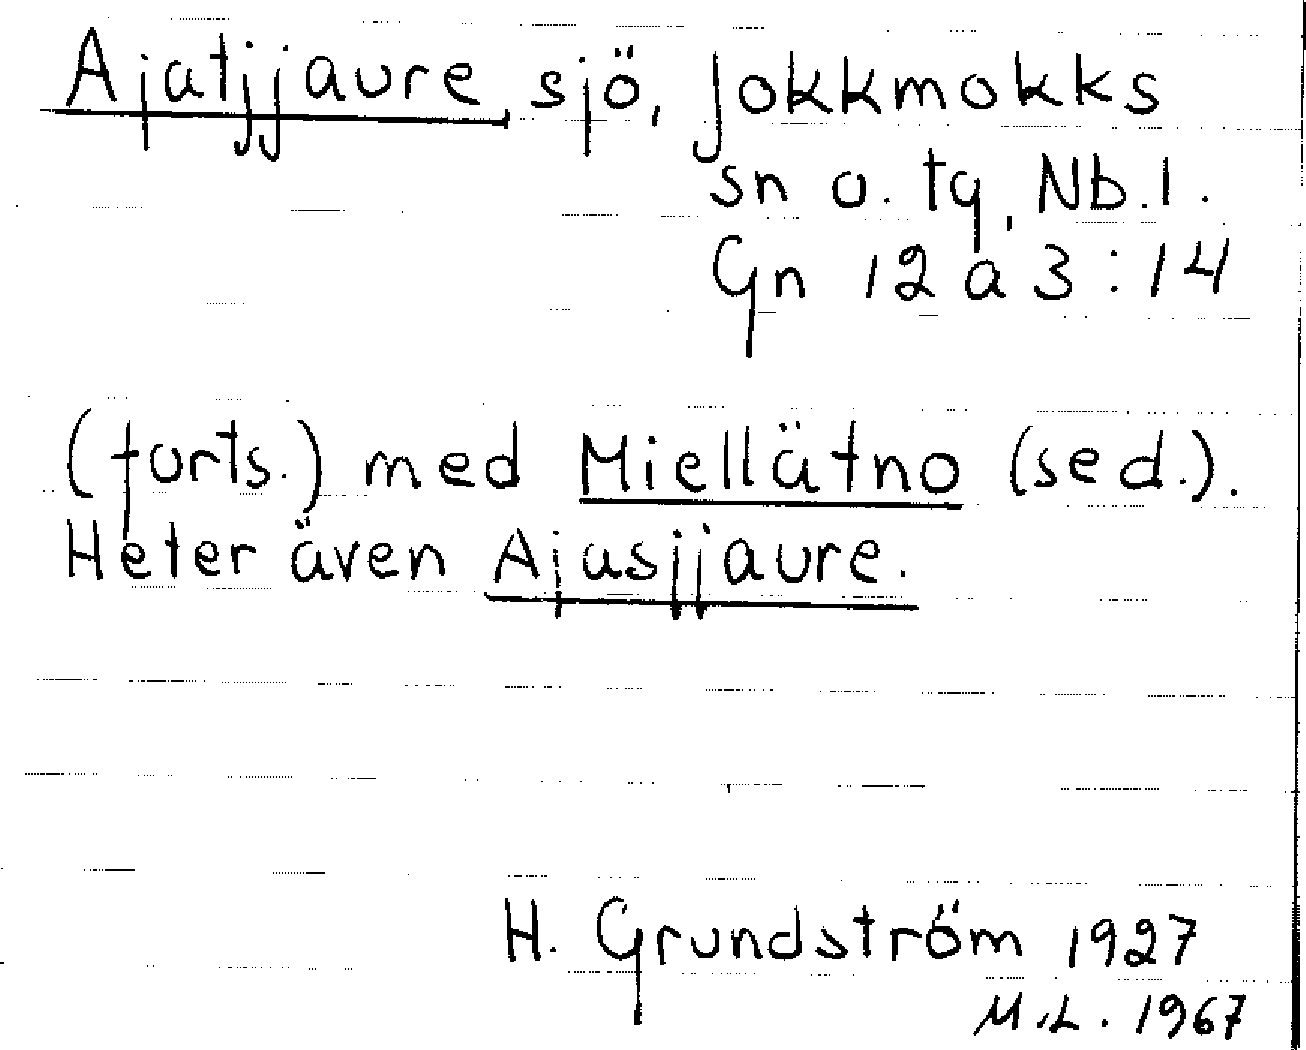 Ajatjjaure, sjö, Jokkmokks
sn o. tg, Nb. l.
Gn 12 a 3 : 14
(forts.) med Miellätno (sed.).
Heter även Ajasjjaure.
H. Grundström 1927
M.L. 1967